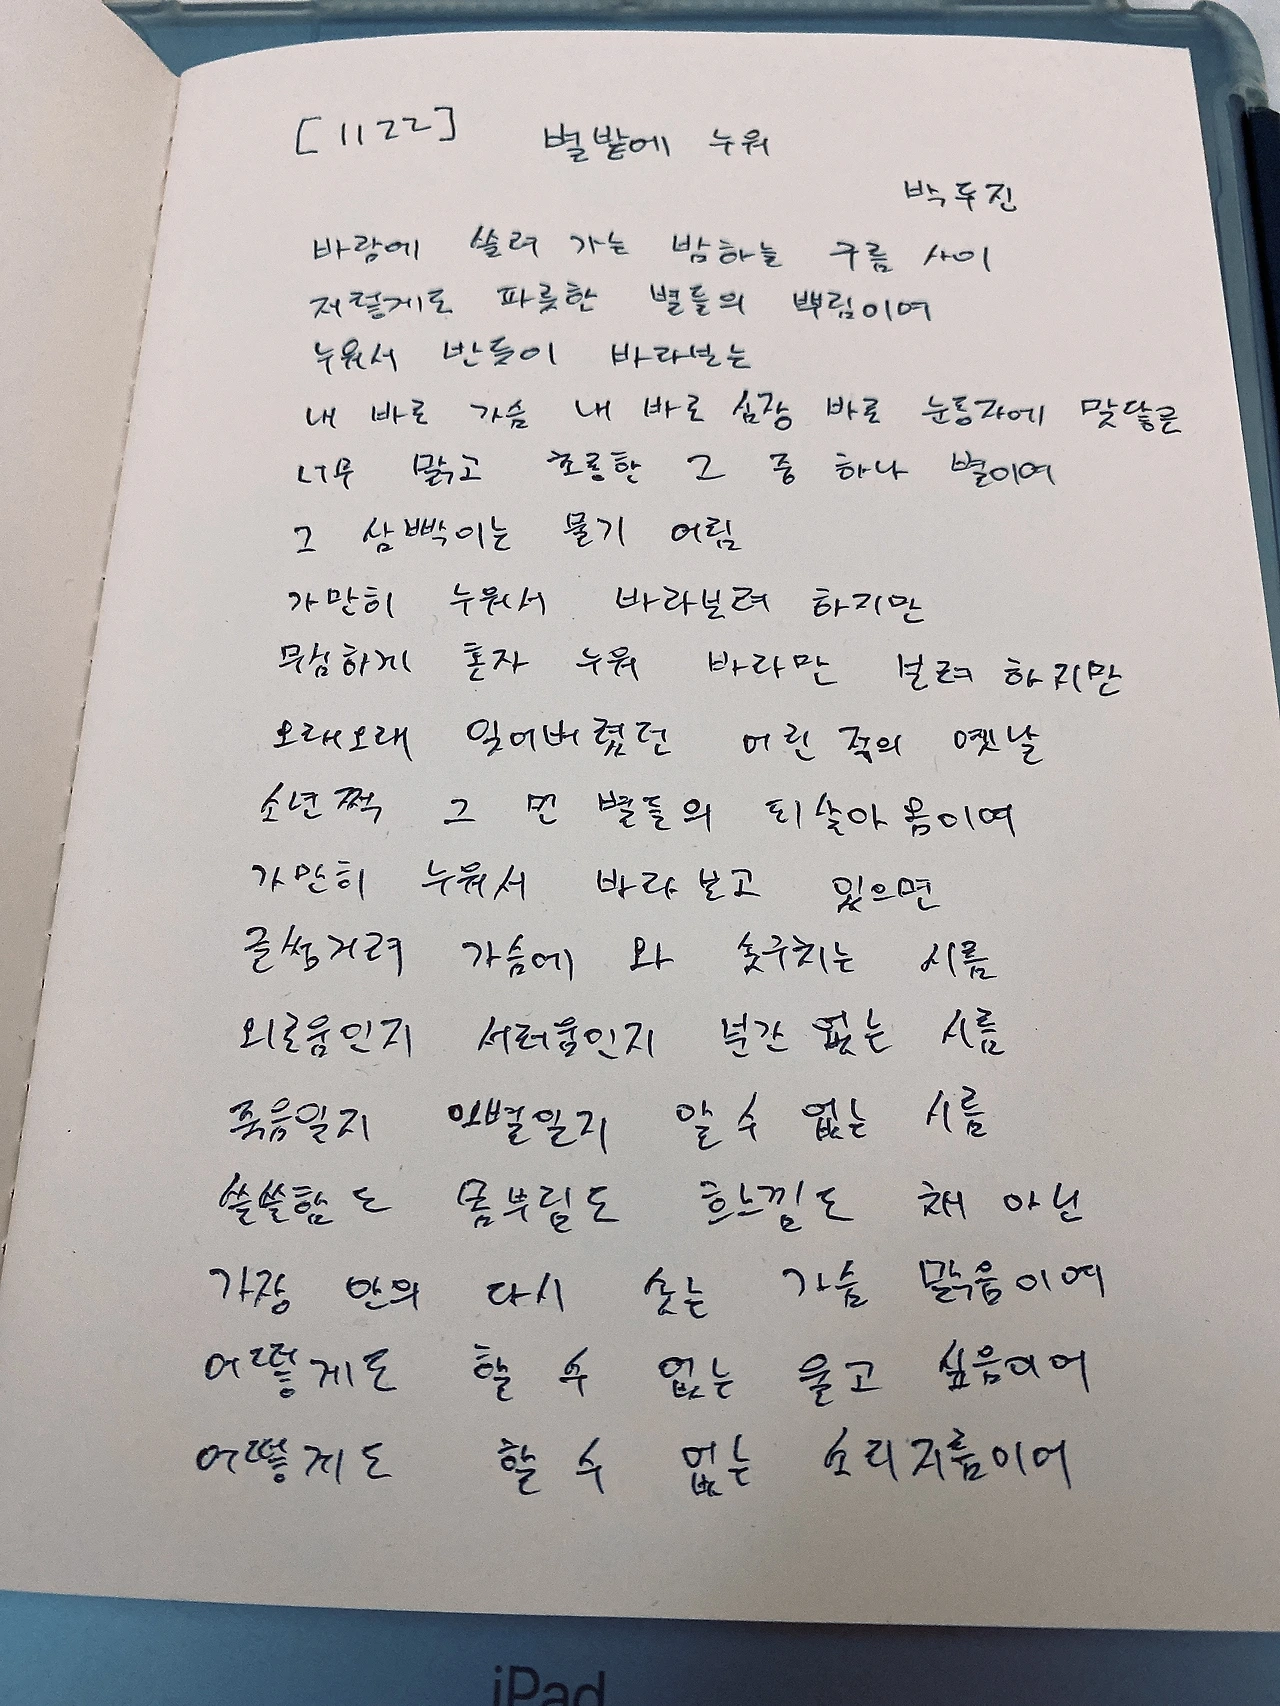 [1122] 별밭에 누워
박두진
바람에 쓸려 가는 밤하늘 구름 사이
저렇게도 파릇한 별들의 뿌림이여
누워서 반듯이 바라보는
내 바로 가슴 내 바로 심장 바로 눈동자에 맞닿는
너무 맑고 초롱한 그 중 하나 별이여
그 삼빡이는 물기 어림
가만히 누워서 바라보려 하지만
무심하게 혼자 누워 바라만 보려 하지만
오래오래 잊어버렸던 어린 적의 옛날
소년쩍 그 먼 별들의 되살아옴이여
가만히 누워서 바라보고 있으면
글썽거려 가슴에 와 솟구치는 시름
외로움인지 서러움인지 분간 없는 시름
죽음일지 이별일지 알 수 없는 시름
쓸쓸함도 몸부림도 흐느낌도 채 아닌
가장 안의 다시 솟는 가슴 맑음이여
어떻게도 할 수 없는 울고 싶음이어
어떻게도 할 수 없는 소리지름이어
iPad